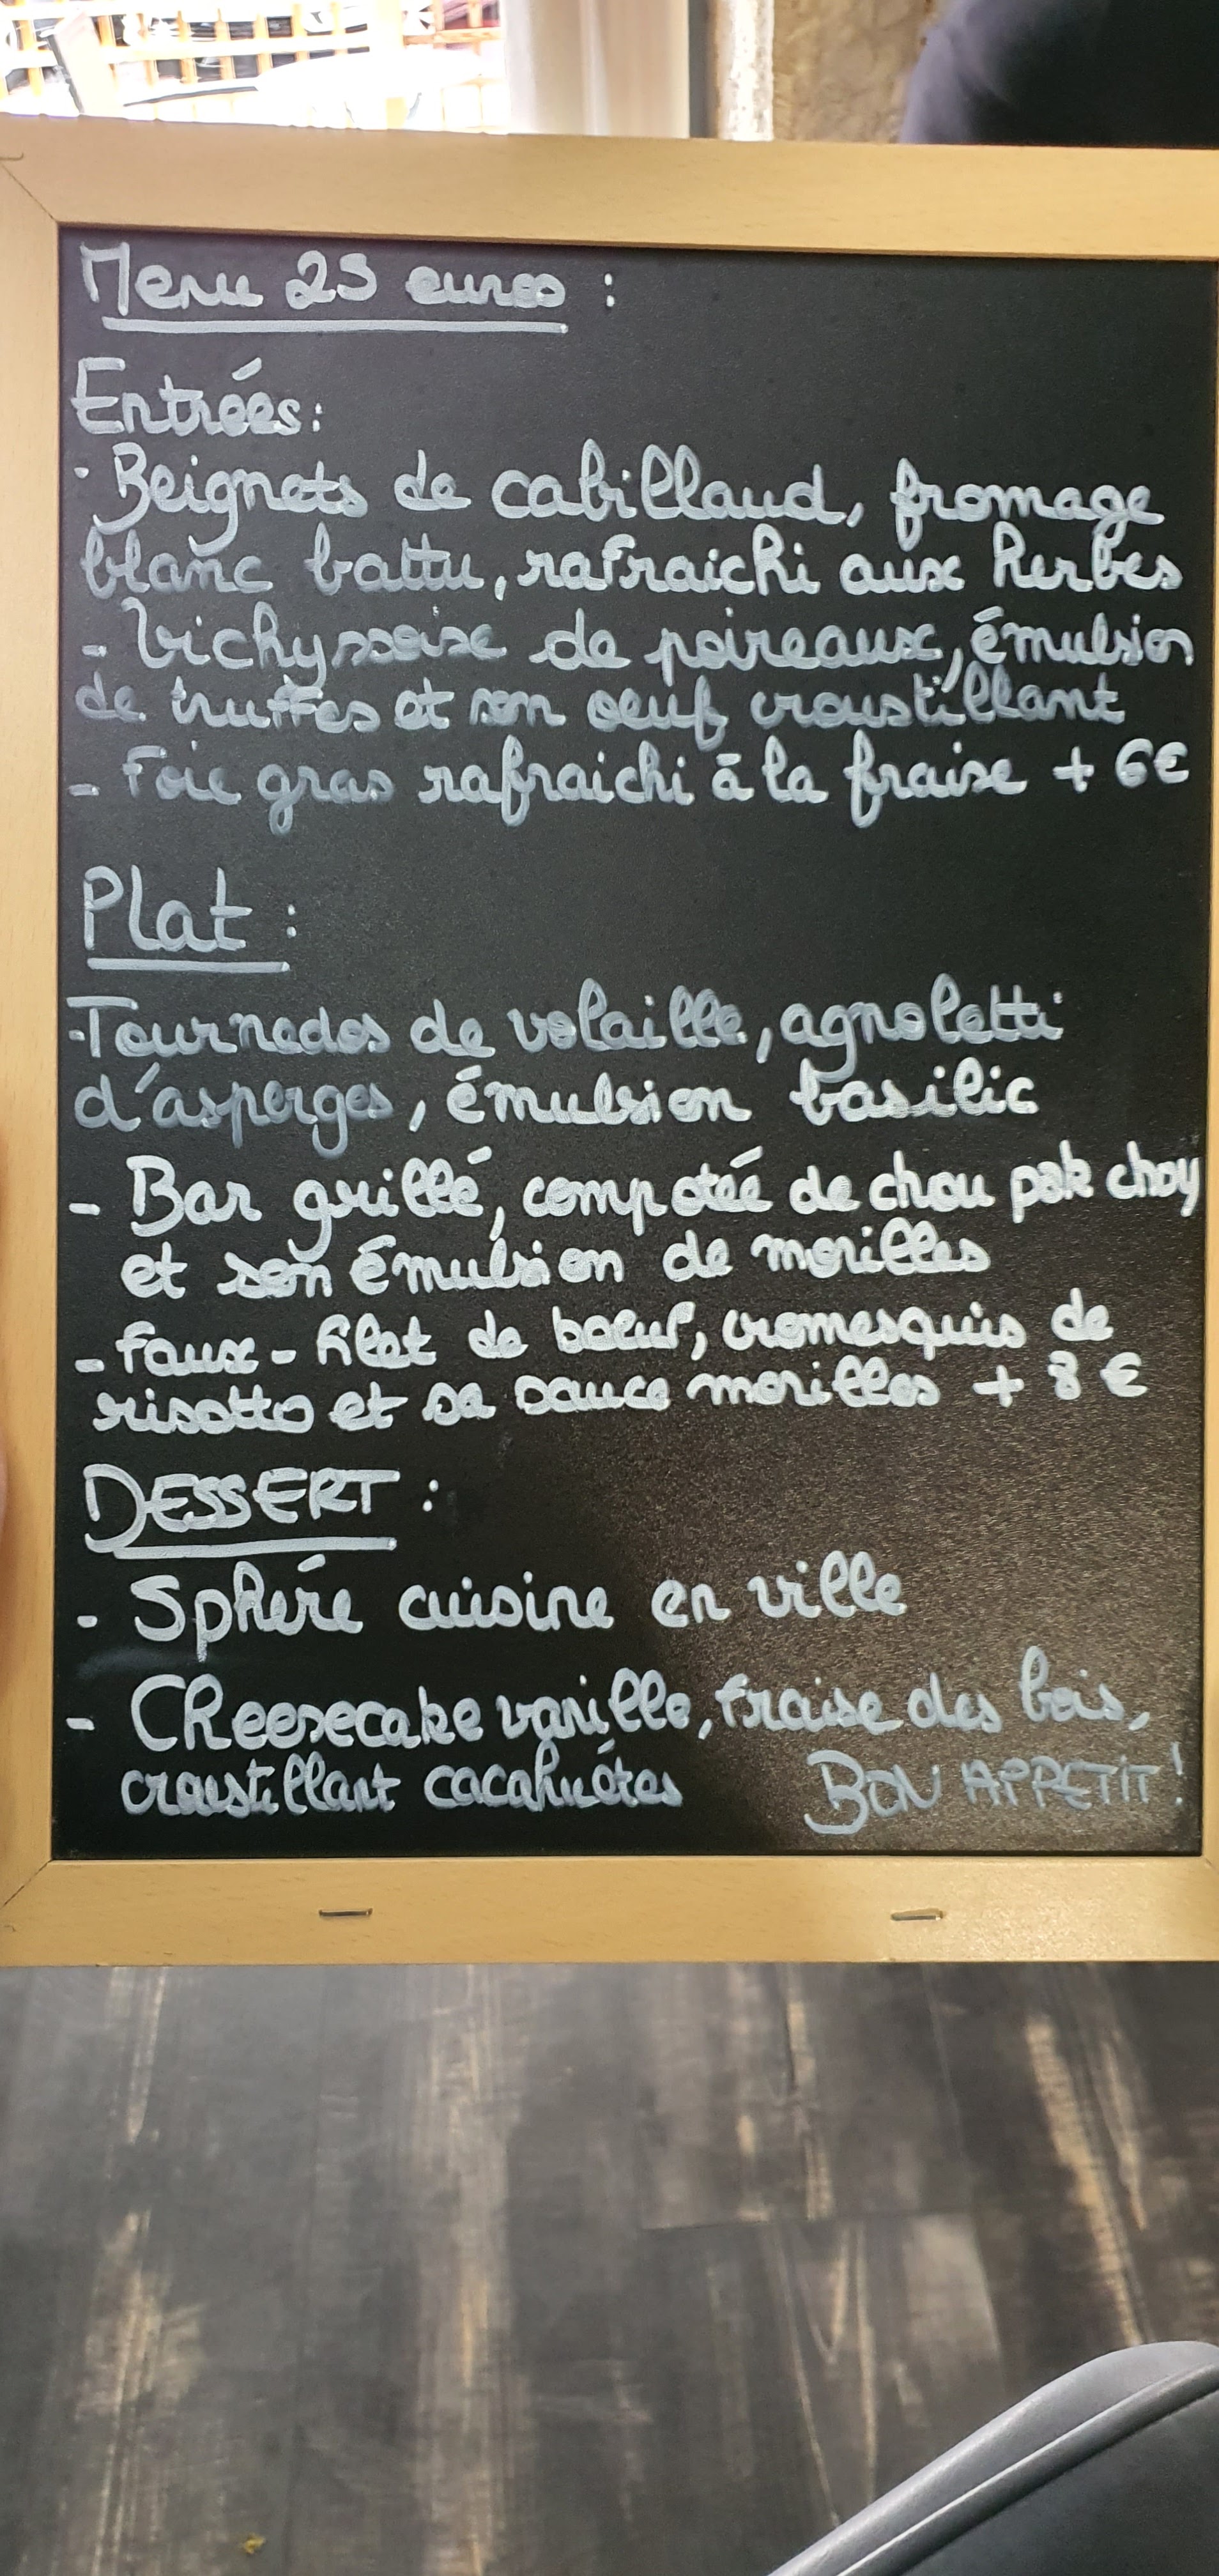 Menu 25 euros :
Entrées:
- Beignets de cabillaud, fromage
blanc battu, rafraichi aux herbes
- Vichyssoise de poireaux, émulsion
de truffes et son oeuf croustillant
- Foie gras rafraichi à la fraise + 6€
Plat :
- Tournedos de volaille, agnoletti
d'asperges, émulsion basilic
- Bar grillé, compotée de chou pak choy
et son émulsion de morilles
- Faux-filet de boeuf, cromesquis de
risotto et sa sauce morilles + 8 €
DESSERT :
- Sphére cuisine en ville
- Cheesecake vanille, fraise des bois,
croustillant cacahuétes BON APPETIT !